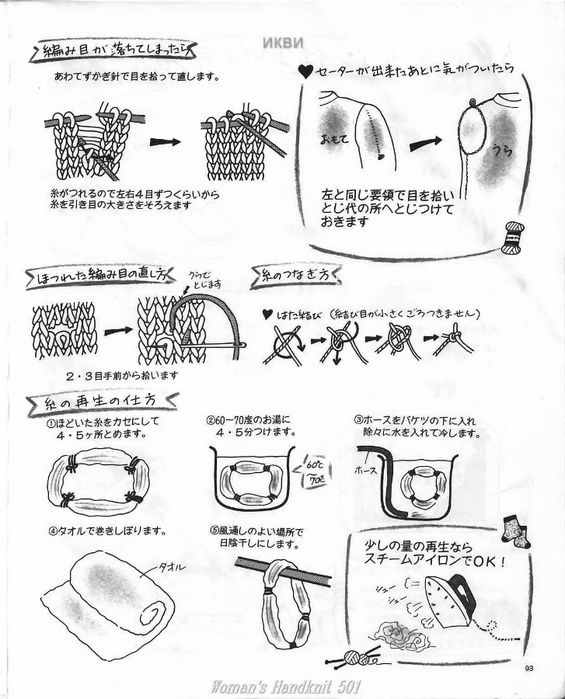 ИКВИ
編み目が落ちてしまったら
あわてずかぎ針で目を拾って直します。
糸がつれるので左右4目ずつくらいから
糸を引き目の大きさをそろえます
♥ セーターが出来たあとに気がついたら
おもて
うら
左と同じ要領で目を拾い
とじ代の所へとじつけて
おきます
ほつれた編み目の直し方
うらで
とじます
2・3目手前から拾います
糸のつなぎ方
♥ はた結び (結び目が小さくごろつきません)
糸の再生の仕方
①ほどいた糸をカセにして
4・5ヶ所とめます。
②60〜70度のお湯に
4・5分つけます。
60℃
〜70℃
③ホースをバケツの下に入れ
除々に水を入れて冷します。
ホース
④タオルで巻きしぼります。
タオル
⑤風通しのよい場所で
日陰干しにします。
少しの量の再生なら
スチームアイロンでOK!
シュー
シュー
93
Woman's Handknit 501